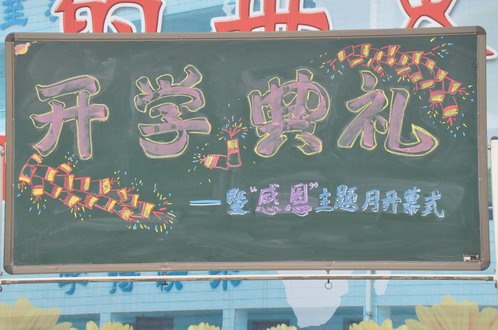 开学典礼
——暨“感恩”主题月开幕式